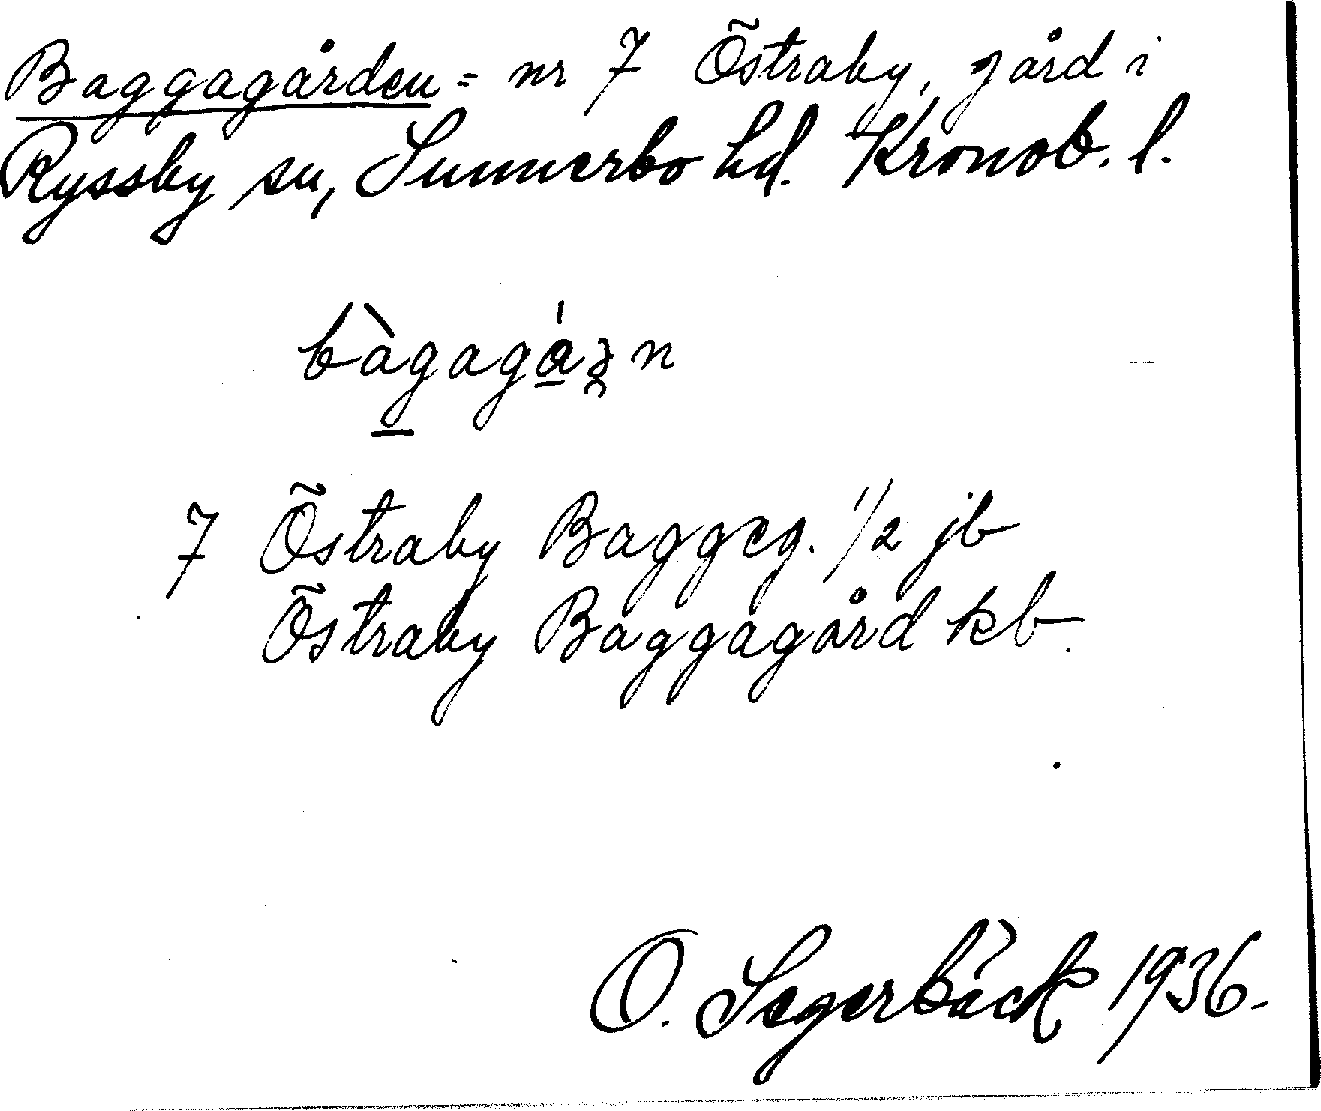 Baggagården = nr 7 Östraby, gård i
Ryssby sn, Sunnerbo hd. Kronob. l.
7 Östraby Baggeg. 1/2 jb
Östraby Baggagård kb.
O. Segerbäck 1936.